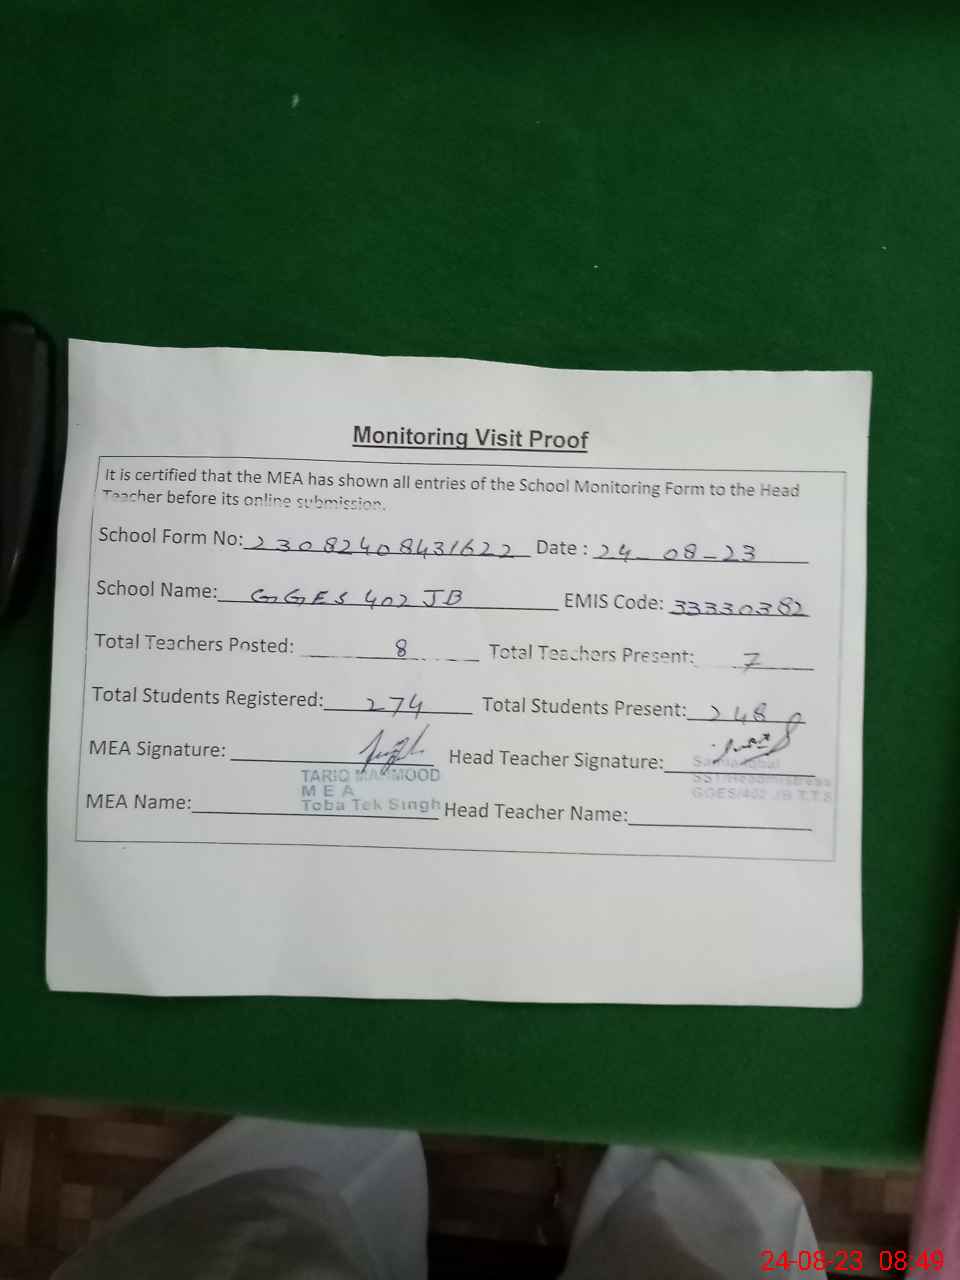 Monitoring Visit Proof
It is certified that the MEA has shown all entries of the School Monitoring Form to the Head
Teacher before its online submission.
School Form No: 23082408431622 Date : 24-08-23
School Name: GGES 402 JB EMIS Code: 33330382
Total Teachers Posted: 8 Total Teachers Present: 7
Total Students Registered: 274 Total Students Present: 248
MEA Signature: Head Teacher Signature:
TARIQ MAHMOOD
MEA
Toba Tek Singh
SST/Headmistress
GGES/402 JB T.T.S
MEA Name: Head Teacher Name:
24-08-23 08:49